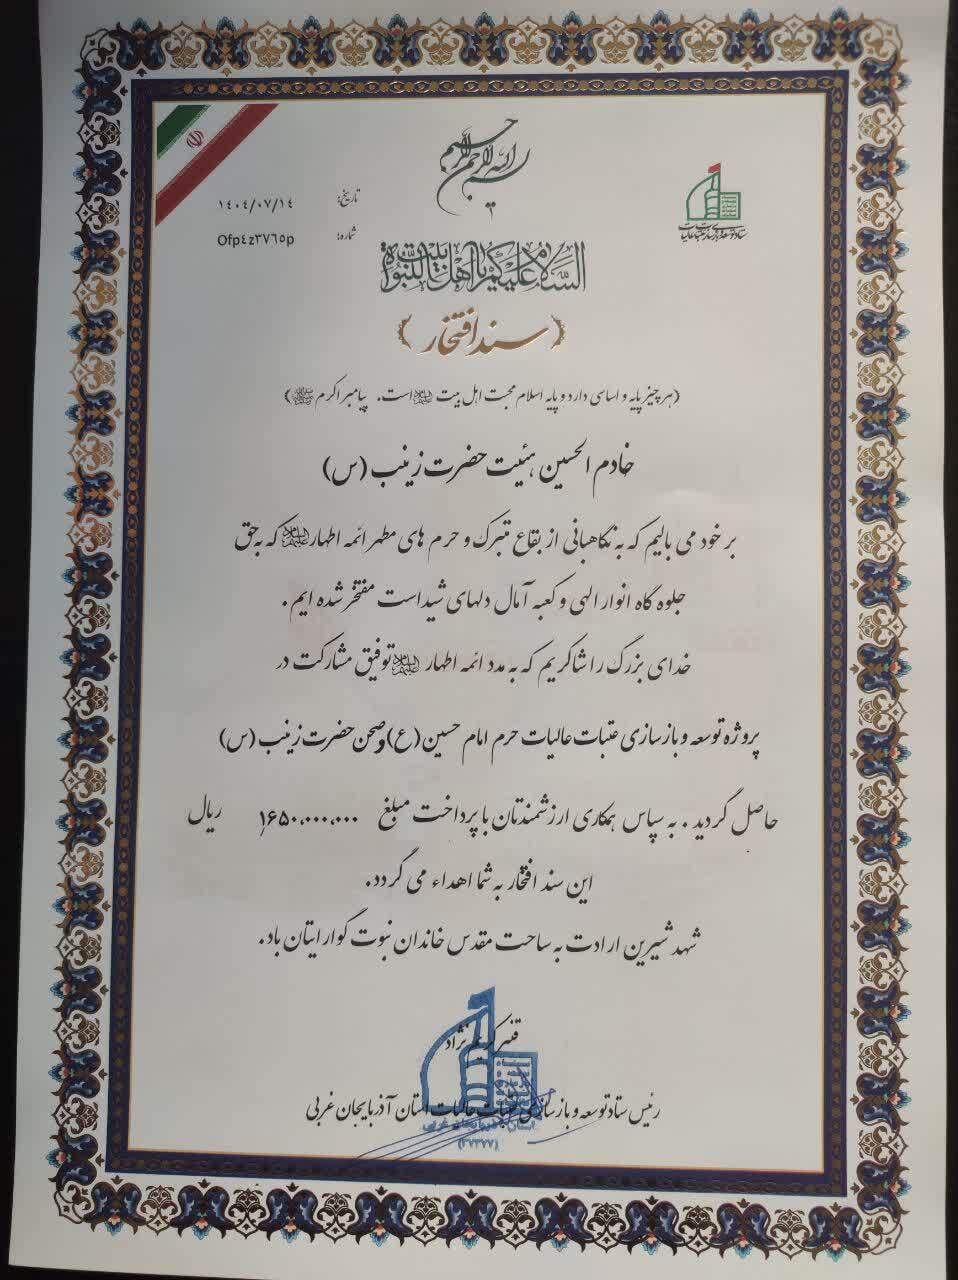 بسم الله الرحمن الرحیم
ستاد توسعه و بازسازی عتبات عالیات
تاریخ: ۱۴۰۴/۰۷/۱۴
شماره: Ofp۴z۳۷۶۵p
السلام علیکم یا اهل بیت النبوة
(سند افتخار)
(هر چیز پایه و اساسی دارد و پایه اسلام محبت اهل بیت علیهم‌السلام است. پیامبر اکرم ﷺ)
خادم الحسین هئیت حضرت زینب (س)
بر خود می بالیم که به نگاهبانی از بقاع متبرک و حرم های مطهر ائمه اطهار علیهم‌السلام که به حق
جلوه گاه انوار الهی و کعبه آمال دلهای شیداست مفتخر شده ایم.
خدای بزرگ را شاکریم که به مدد ائمه اطهار علیهم‌السلام توفیق مشارکت در
پروژه توسعه و بازسازی عتبات عالیات حرم امام حسین (ع) و صحن حضرت زینب (س)
حاصل گردید. به سپاس همکاری ارزشمندتان با پرداخت مبلغ ۱,۶۵۰,۰۰۰,۰۰۰ ریال
این سند افتخار به شما اهداء می گردد.
شهد شیرین ارادت به ساحت مقدس خاندان نبوت گوارایتان باد.
قنبر کریم نژاد
رئیس ستاد توسعه و بازسازی عتبات عالیات استان آذربایجان غربی
استان آذربایجان غربی